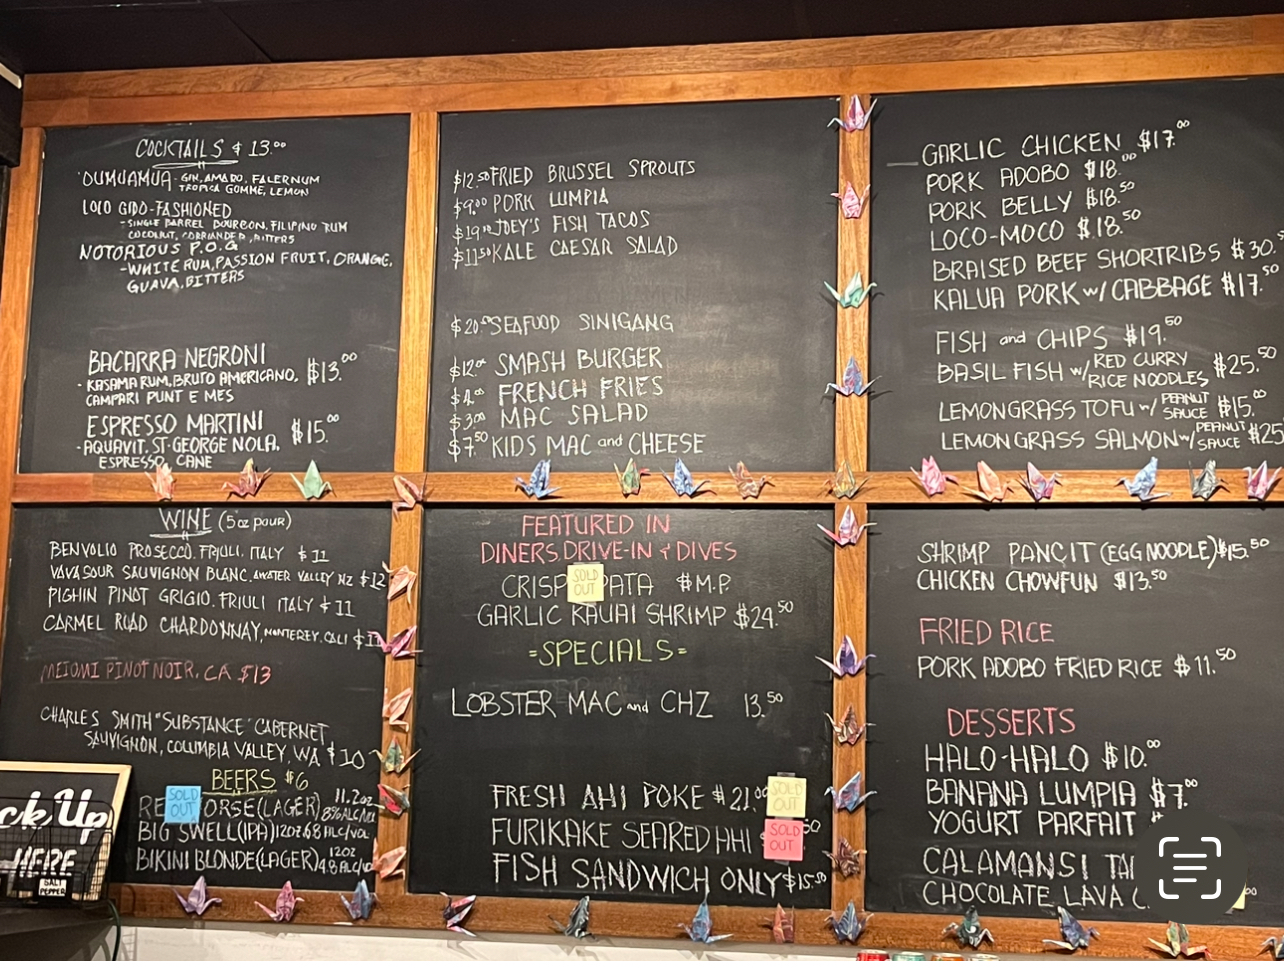 COCKTAILS $13.00
OUMUAMUA - GIN, AMARO, FALERNUM
TROPICA GOMME, LEMON
LOLO GIDO-FASHIONED
-SINGLE BARREL BOURBON, FILIPINO RUM
COCONUT, CORRIANDER, BITTERS
NOTORIOUS P.O.G
-WHITE RUM, PASSION FRUIT, ORANGE,
GUAVA, BITTERS
BACARRA NEGRONI $13.00
- KASAMA RUM, BRUTO AMERICANO,
CAMPARI PUNT E MES
ESPRESSO MARTINI $15.00
-AQUAVIT, ST. GEORGE NOLA,
ESPRESSO, CANE
$12.50 FRIED BRUSSEL SPROUTS
$9.00 PORK LUMPIA
$19.00 JOEY'S FISH TACOS
$11.50 KALE CAESAR SALAD
$20.00 SEAFOOD SINIGANG
$12.00 SMASH BURGER
$4.00 FRENCH FRIES
$3.00 MAC SALAD
$7.50 KIDS MAC and CHEESE
GARLIC CHICKEN $17.00
PORK ADOBO $18.00
PORK BELLY $18.50
LOCO-MOCO $18.50
BRAISED BEEF SHORTRIBS $30.50
KALUA PORK w/ CABBAGE $17.50
FISH and CHIPS $19.50
BASIL FISH w/ RED CURRY RICE NOODLES $25.50
LEMONGRASS TOFU w/ PEANUT SAUCE $15.00
LEMONGRASS SALMON w/ PEANUT SAUCE $25
WINE (5oz pour)
BENVOLIO PROSECCO. FRIULI. ITALY $11
VAVASOUR SAUVIGNON BLANC. AWATER VALLEY NZ $12
PIGHIN PINOT GRIGIO. FRIULI ITALY $11
CARMEL ROAD CHARDONNAY, MONTEREY. CALI
MEIOMI PINOT NOIR, CA $13
CHARLES SMITH "SUBSTANCE" CABERNET
SAUVIGNON, COLUMBIA VALLEY, WA $10
BEERS $6
RE SOLD OUT ORSE (LAGER) 11.2oz 8% ALC/VOL
BIG SWELL (IPA) 12oz 6.8 ALC/VOL
BIKINI BLONDE (LAGER) 12oz 4.8 ALC/VO
ck Up
HERE
SALT
PEPPER
FEATURED IN
DINERS DRIVE-IN & DIVES
CRISP SOLD OUT PATA $M.P.
GARLIC KAUAI SHRIMP $24.50
=SPECIALS=
LOBSTER MAC and CHZ 13.50
FRESH AHI POKE $21.00 SOLD OUT
FURIKAKE SEARED AHI $ SOLD OUT 50
FISH SANDWICH ONLY $15.50
SHRIMP PANCIT (EGG NOODLE) $15.50
CHICKEN CHOWFUN $13.50
FRIED RICE
PORK ADOBO FRIED RICE $11.50
DESSERTS
HALO-HALO $10.00
BANANA LUMPIA $7.00
YOGURT PARFAIT $
CALAMANSI TA
CHOCOLATE LAVA C